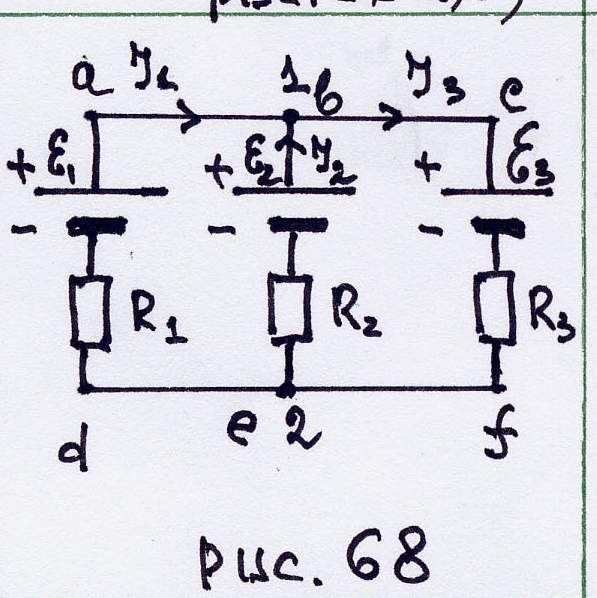 a I₁ 1 b I₃ c
+ ℰ₁ + ℰ₂ I₂ + ℰ₃
- - -
R₁ R₂ R₃
d e 2 f
рис. 68